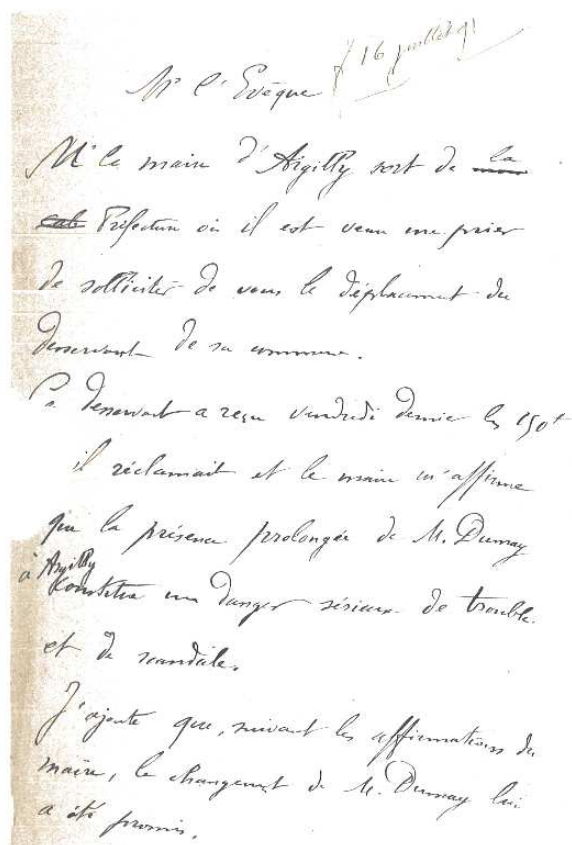 16 juillet 91
Mr l'Evêque
Mr le maire d'Argilly sort de la
Préfecture où il est venu me prier
de solliciter de vous le déplacement du
desservant de sa commune.
Ce desservant a reçu vendredi dernier les 150f
il réclamait et le maire m'affirme
que la présence prolongée de M. Dumay
à Argilly
constitue un danger sérieux de trouble
et de scandale.
J'ajoute que, suivant les affirmations du
maire, le changement de M. Dumay lui
a été promis.